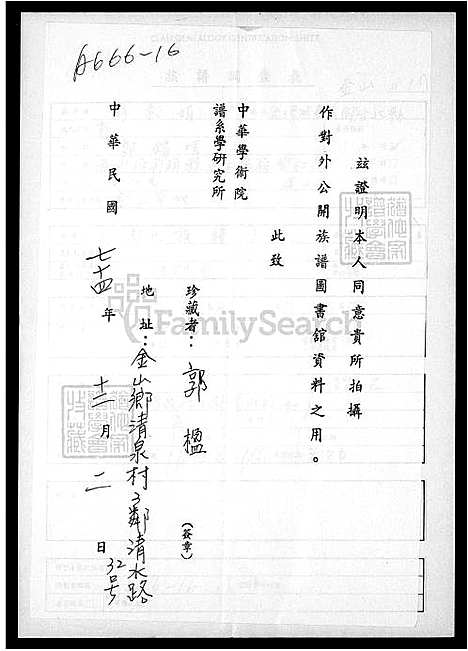 A666-16
茲證明本人同意貴所拍攝
作對外公開族譜圖書館資料之用。
此致
中華學術院
譜系學研究所
珍藏者：郭楹（簽章）
地址：金山鄉清泉村3鄰清水路32号
中華民國七十四年十二月二日
FamilySearch